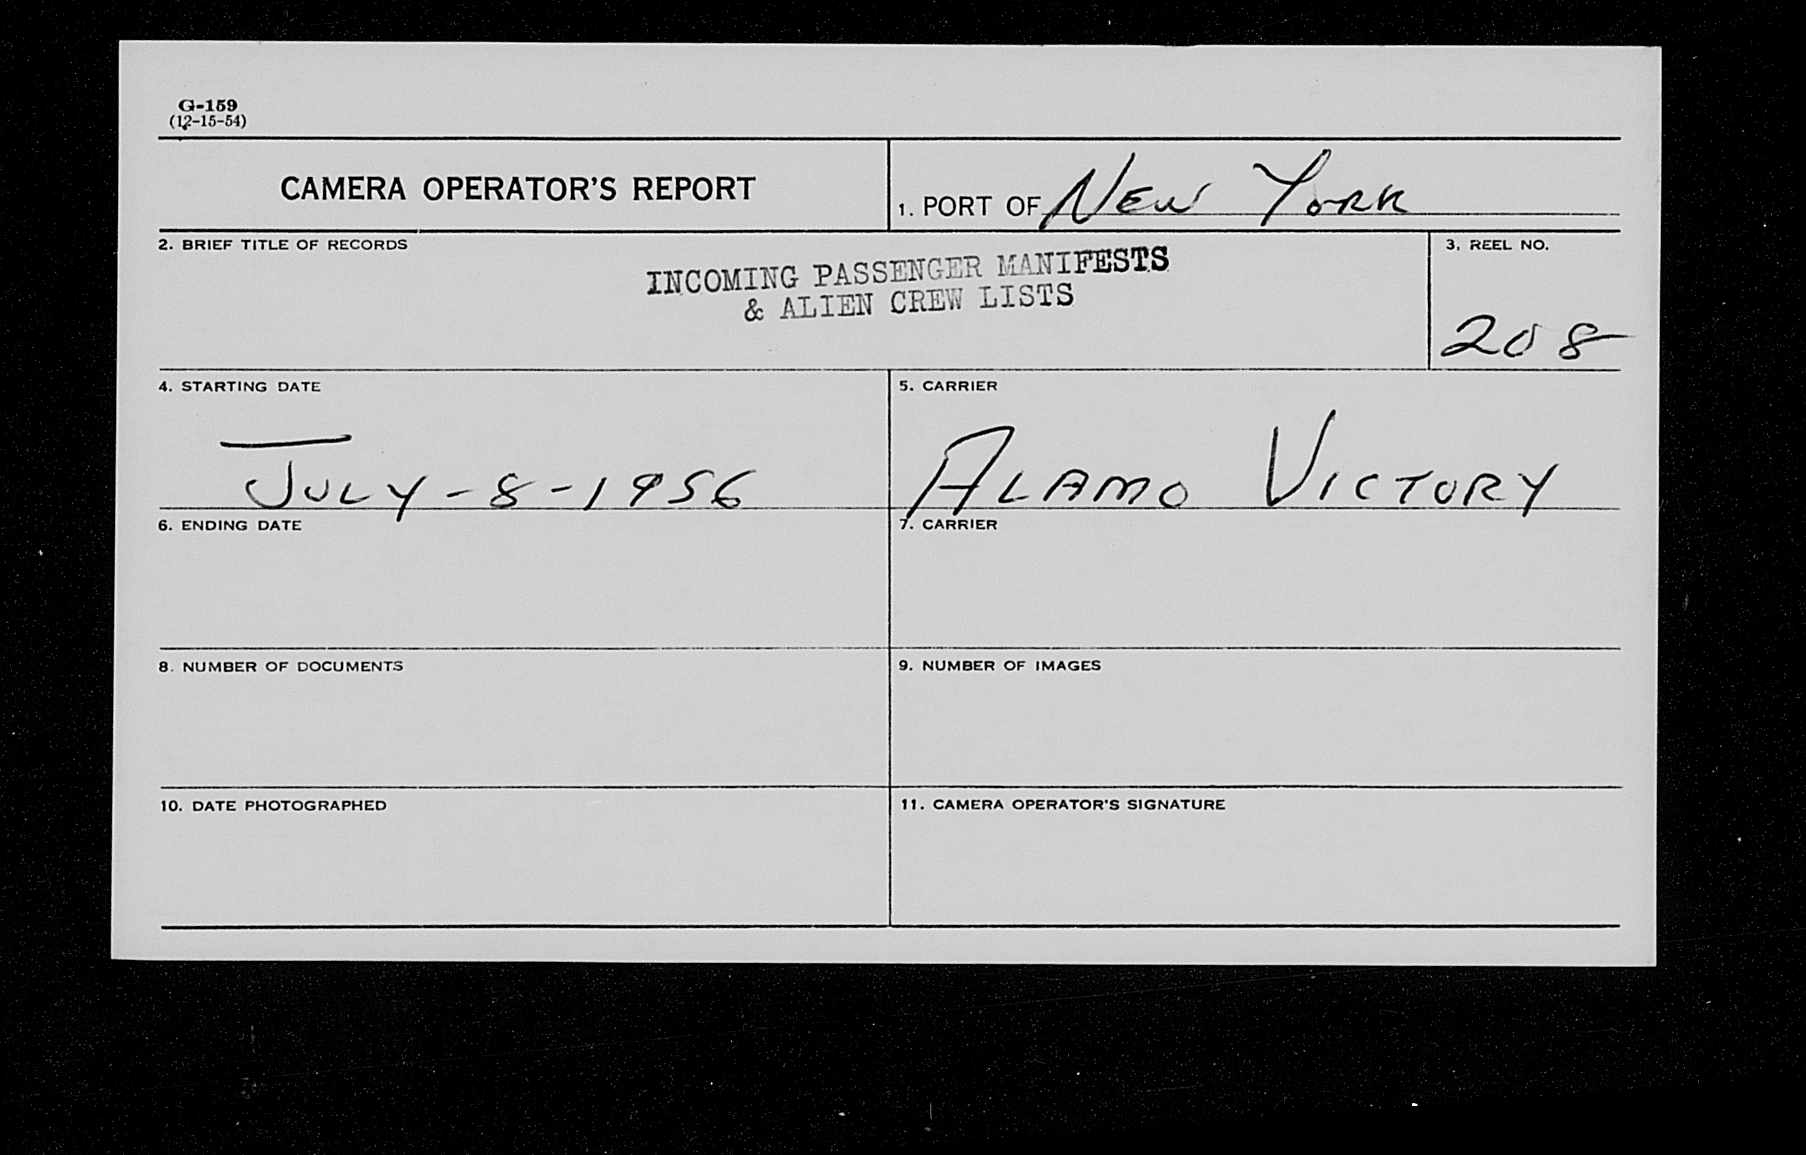 G-159
(12-15-54)
CAMERA OPERATOR'S REPORT
1. PORT OF NEW YORK
2. BRIEF TITLE OF RECORDS
INCOMING PASSENGER MANIFESTS
& ALIEN CREW LISTS
3. REEL NO.
208
4. STARTING DATE
JULY-8-1956
5. CARRIER
ALAMO VICTORY
6. ENDING DATE
7. CARRIER
8. NUMBER OF DOCUMENTS
9. NUMBER OF IMAGES
10. DATE PHOTOGRAPHED
11. CAMERA OPERATOR'S SIGNATURE